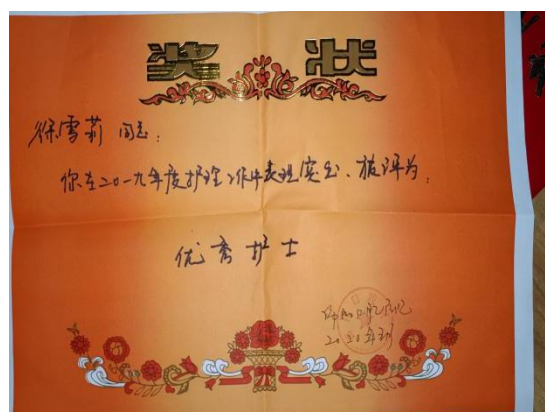 奖状
徐雪莉 同志：
你在二0一九年度护理工作中表现突出、被评为：
优秀护士